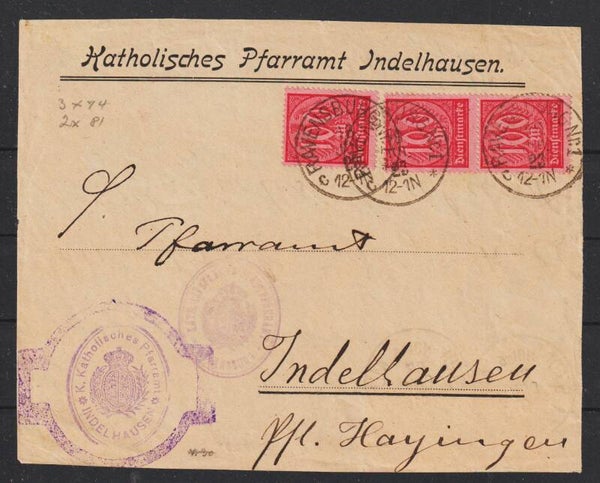 Katholisches Pfarramt Indelhausen.
3 x 74
2 x 81
100 Dienstmarke
100 Dienstmarke
100 Dienstmarke
RAVENSB
12-1N
Nr.1
12-1N
RA
Nr.1
12-1N
Pfarramt
K. Katholisches Pfarramt
INDELHAUSEN
Indelhausen
Pfl. Hayingen